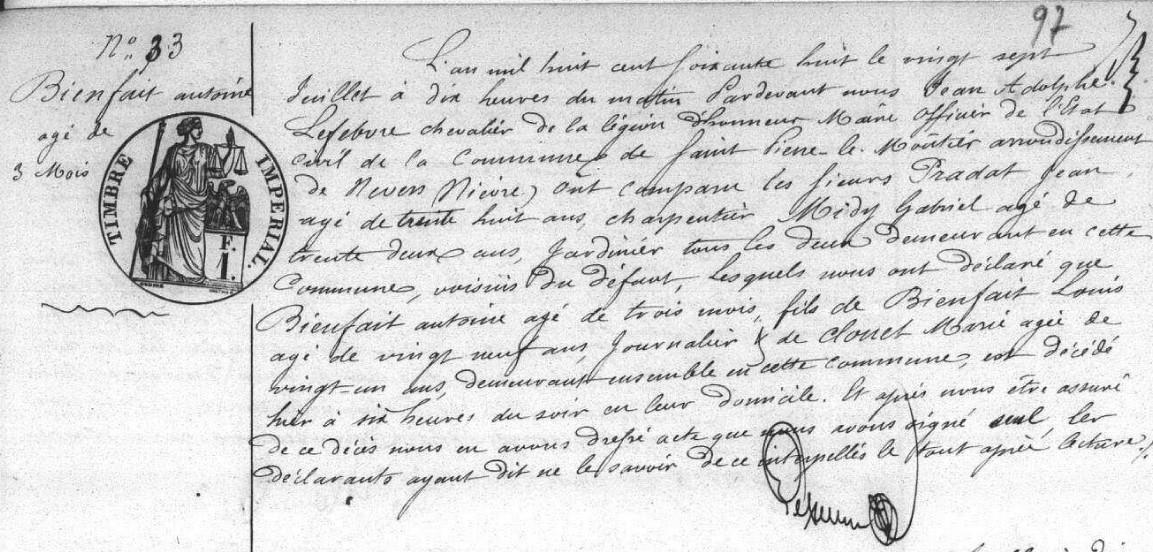 97
N.° 33
Bienfait antoine
agé de
3 Mois
TIMBRE IMPERIAL.
F.
1.
L'an mil huit cent soixante huit le vingt sept
Juillet à dix heures du matin Pardevant nous Jean Adolphe
Lefebvre chevalier de la légion d'honneur Maire Officier de l'Etat
civil de la Commune de Saint Pierre-le-Moûtier arrondissement
de Nevers (Nièvre) Ont comparu les sieurs Pradat Jean,
agé de trente huit ans, charpentier, Midy Gabriel agé de
trente deux ans, Jardinier tous les deux demeurant en cette
Commune, voisins du défunt, Lesquels nous ont déclaré que
Bienfait antoine agé de trois mois, fils de Bienfait Louis
agé de vingt neuf ans, Journalier & de Clouet Marie agée de
vingt-un ans, demeurant ensemble en cette commune, est décédé
hier à six heures du soir en leur domicile. Et après nous être assuré
de ce décès nous en avons dressé acte que nous avons signé seul, les
déclarants ayant dit ne le savoir de ce interpellés le tout après lecture.